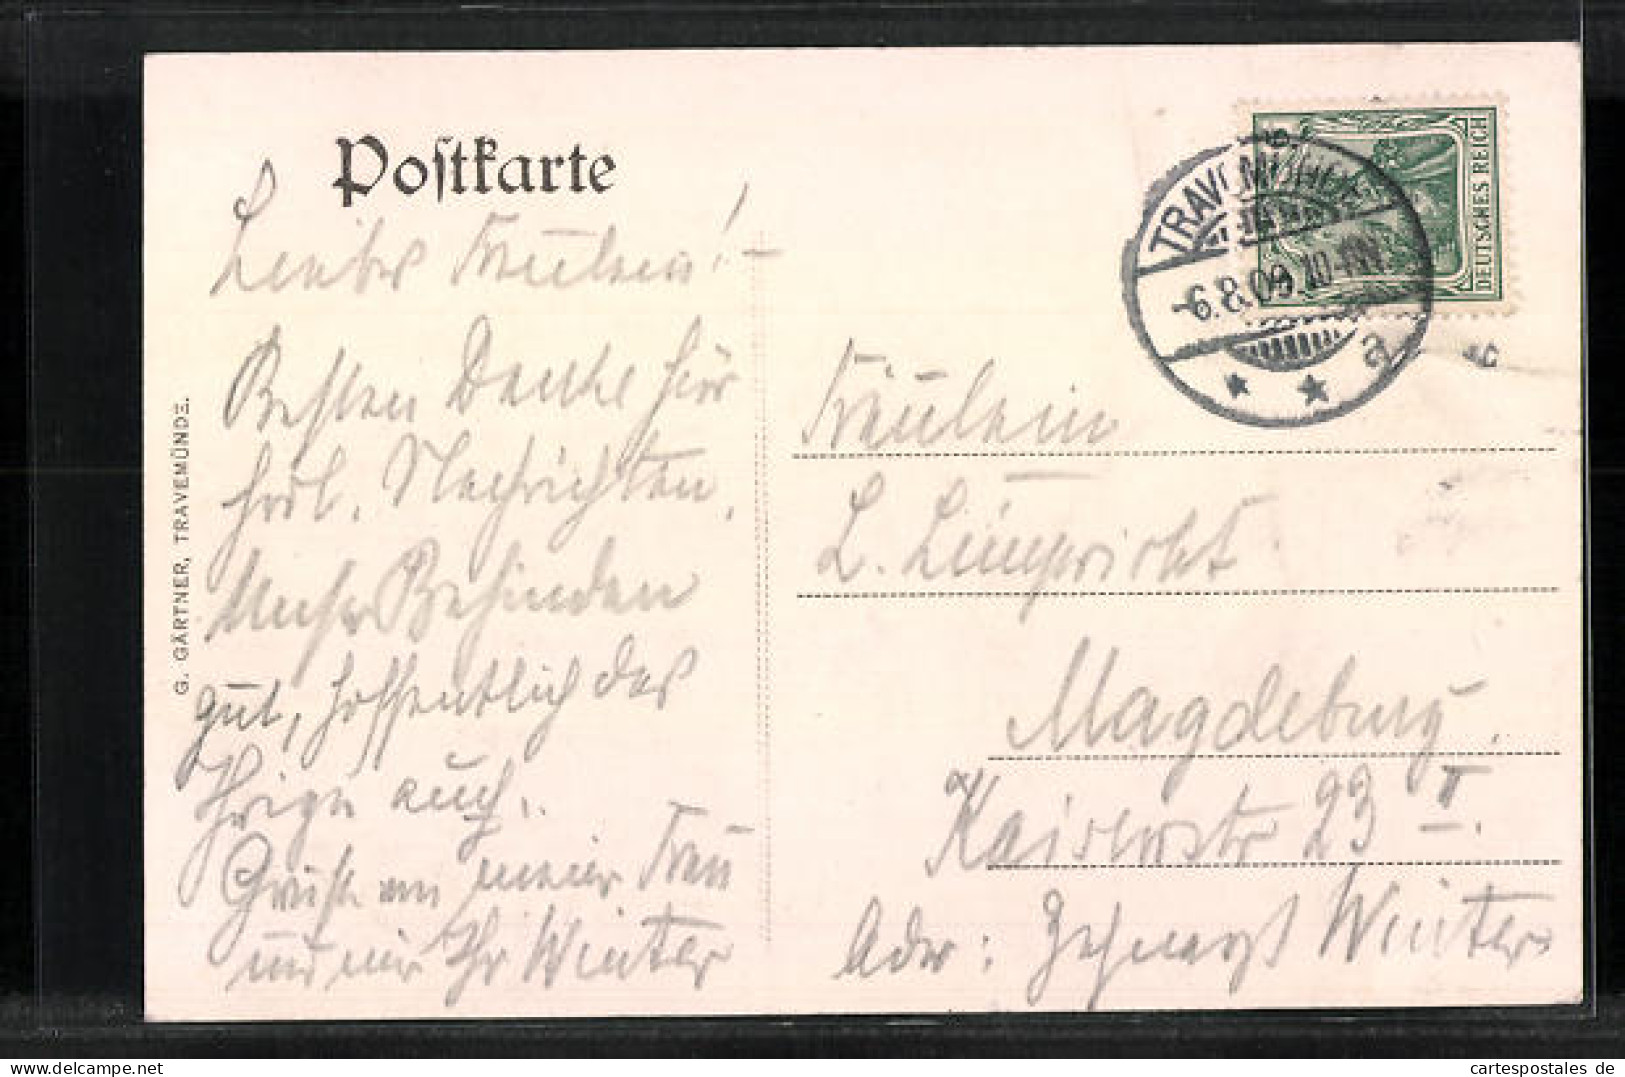 Postkarte
Liebes Fräulein! –
Besten Danke für
frdl. Nachrichten,
Unser Befinden
gut, hoffentlich das
Ihrige auch.
Grüße von meiner Frau
und mir Ihr Winter
G. GÄRTNER, TRAVEMÜNDE.
TRAVEMÜNDE
6.8.09. 10-11N.
* * a
DEUTSCHES REICH
Fräulein
L. Lüngricht
Magdeburg.
Kaiserstr 23 II.
Adr: Zahnarzt Winter
cartespostales de